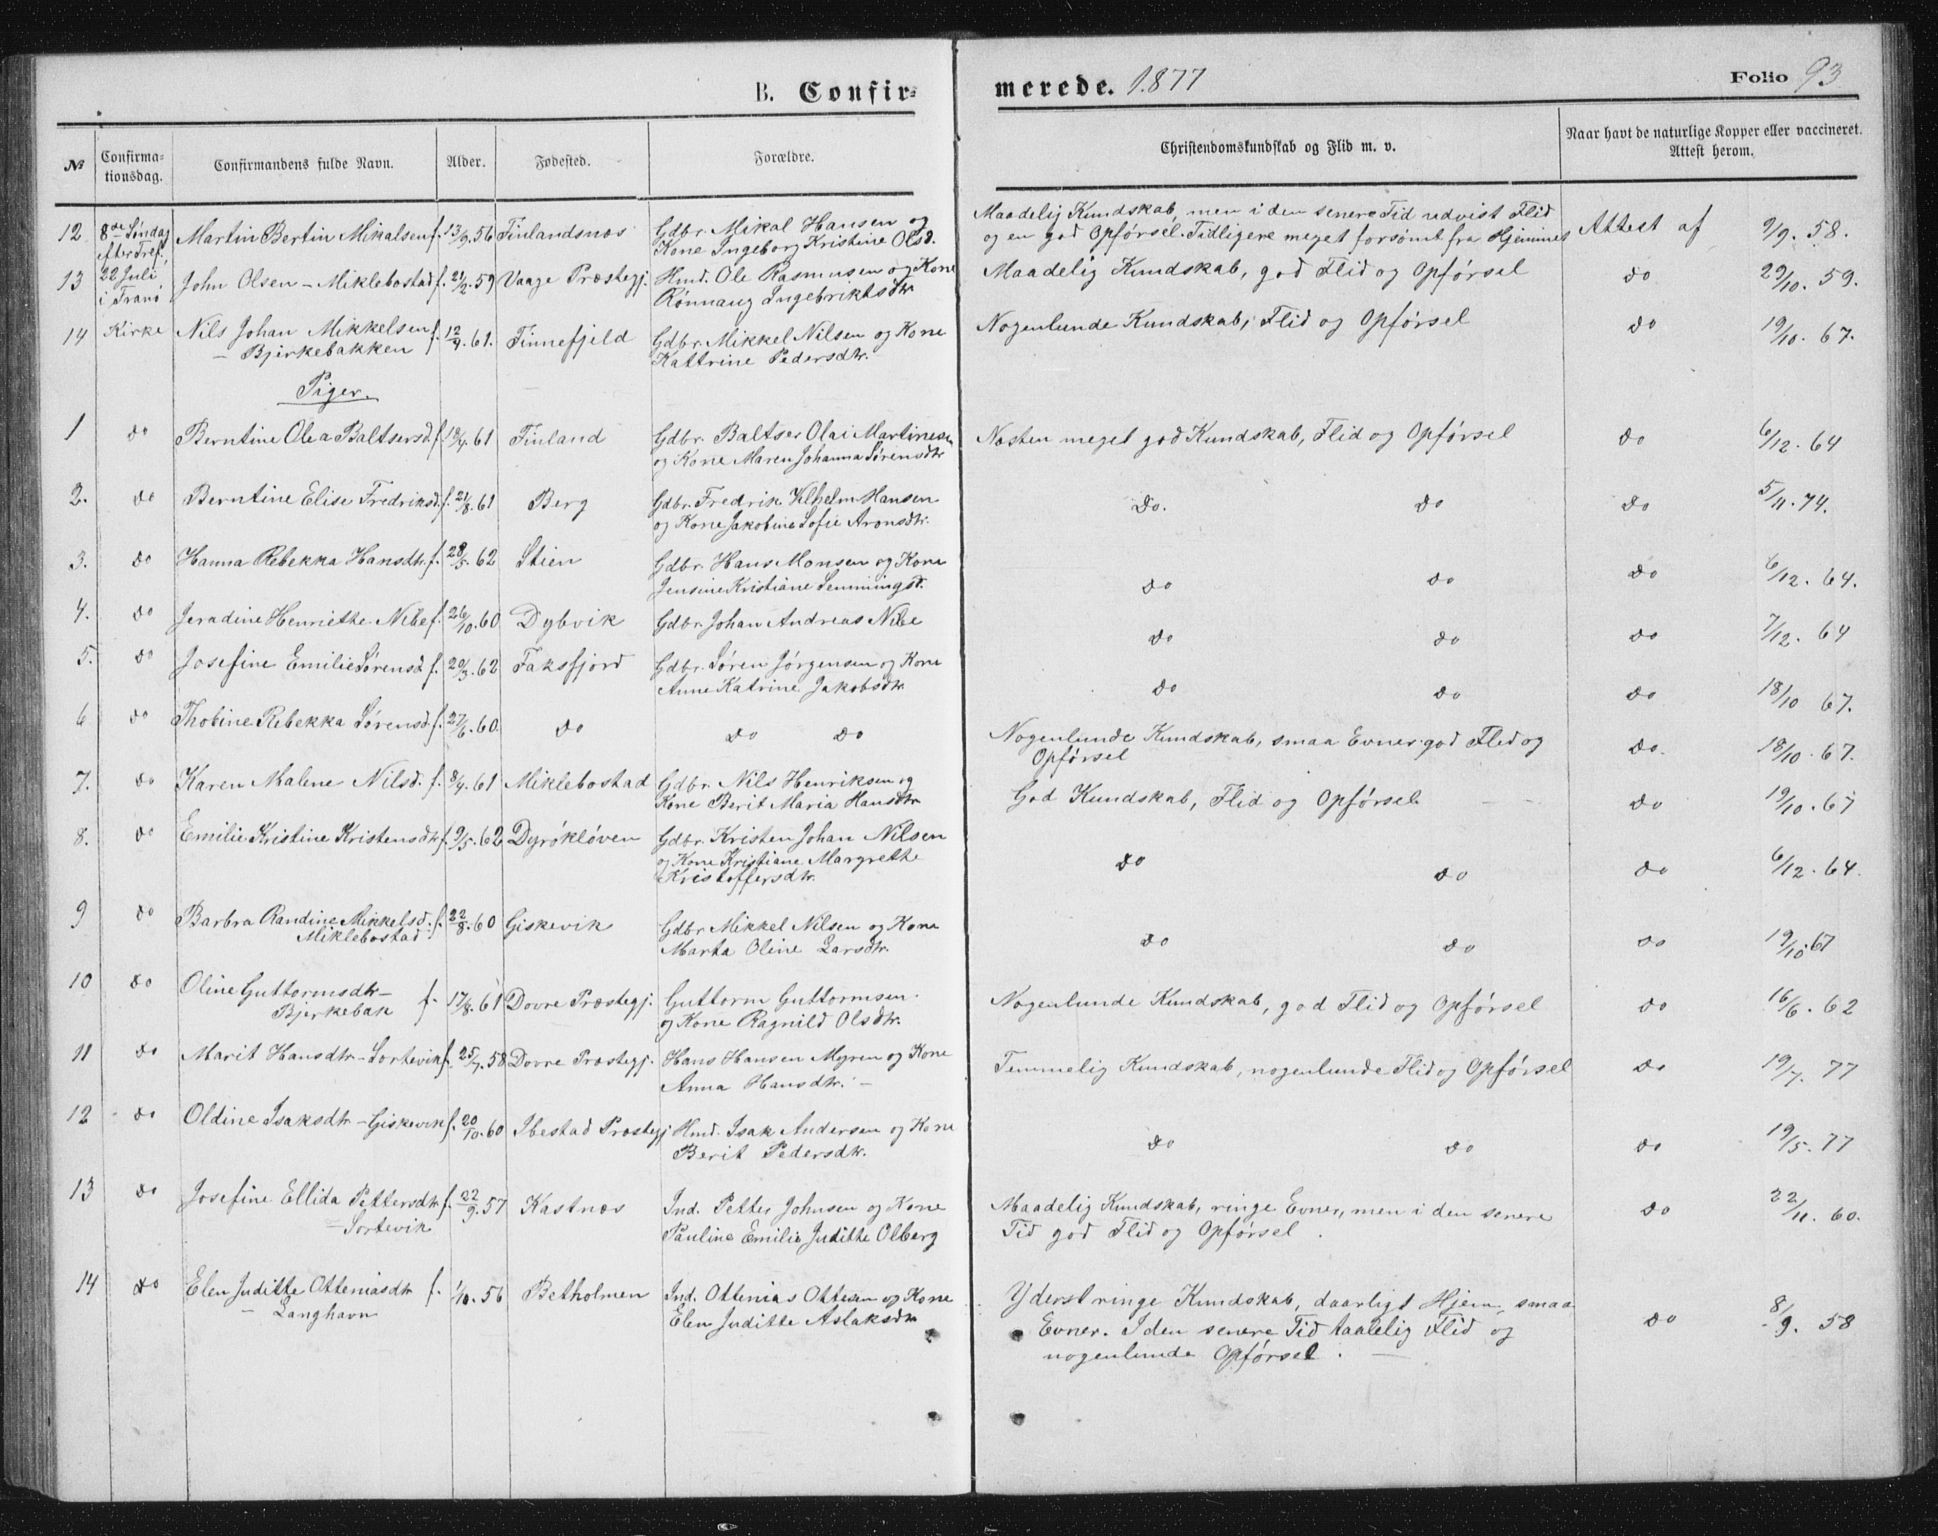 B. Confir=
merede. 1877
Folio 93
No
Confirma-
tionsdag.
Confirmandens fulde Navn.
Alder.
Fødested.
Forældre.
Christendomskundskab og Flid m. v.
Naar havt de naturlige Kopper eller vaccineret.
Attest herom.
12 8de Søndag Martin Bertin Mikalsen f. 13/9.56 Finlandsnæs Gdbr. Mikal Hansen og
efter Tref. Kone Ingeborg Kristine Olsd.
Maadelig Kundskab, men i den senere Tid udvist Flid
og en god Opførsel. Tidligere meget forsømt fra Hjemmet
Attest af 9/9. 58.
13 22 Juli John Olsen - Miklebostad f. 21/2.59 Vaage Præstegj. Hmd. Ole Rasmusen og Kone
i Tranø Rønnaug Ingebriktsdtr
Maadelig Kundskab, god Flid og Opførsel do 29/10. 59.
14 Kirke Nils Johan Mikkelsen f. 12/4.61. Finnefjeld Gdbr. Mikkel Nilsen og Kone
- Bjirkebakken Kattrine Pedersdtr.
Nogenlunde Kundskab, Flid og Opførsel do 19/10. 67.
Piger.
1 do Berntine Olea Baltsersd. f. 19/4.61 Finland Gdbr. Baltser Olai Martinesen
og Kone Maren Johanna Sørensdtr
Næsten meget god Kundskab, Flid og Opførsel do 6/12. 64
2. do Berntine Elise Fredriksd. f. 21/8.61 Berg Gdbr. Fredrik Vlhelm Hansen
og Kone Jakobine Sofie Aronsdtr.
Do. do do 5/11. 74.
3. do Hanna Rebekka Hansdtr. f. 28/5.62 Stien Gdbr. Hans Monsen og Kone
Jensine Kristiane Semmingsd.
do do do 6/12. 64.
4. do Jeradine Henriette Nibe f. 26/10.60 Dybvik Gdbr. Johan Andreas Nibe
do do do 7/12. 64
5. do Josefine Emilie Sørensd. f. 20/3.62 Faksfjord Gdbr. Søren Jørgensen og Kone
Anne Katrine Jakobsdtr.
do do do 18/10 67.
6 do Thobine Rebekka Sørensd. f. 27/6.60. do do do
Nogenlunde Kundskab, smaa Evner. god Flid og
Opførsel
do. 18/10. 67.
7. do Karen Malene Nilsd. f. 8/4.61 Miklebostad Gdbr. Nils Henriksen og
Kone Berit Maria Hansdtr
God Kundskab, Flid og Opførsel do 19/10. 67
8. do Emilie Kristine Kristensdtr f. 9/5.62 Dyrøkløven Gdbr. Kristen Johan Nilsen
og Kone Kristiane Margrethe
Kristoffersdtr.
do do do 6/12. 64.
9 do Barbra Randine Mikkelsd. f. 22/8.60 Giskevik Gdbr. Mikkel Nilsen og Kone
Miklebostad Marta Oline Larsdtr.
do do do 19/10 67
10 do Oline Guttormsdtr- f. 17/8.61 Dovre Præstegj. Guttorm Guttormsen
Bjerkebak og Kone Ragnild Olsdtr.
Nogenlunde Kundskab, god Flid og Opførsel do 16/6. 62
11 do Marit Hansdtr - Sortevik f. 25/7.58 Dovre Præstegj. Hans Hansen Myren og Kone
Anna Hansdtr. -
Temmelig Kundskab, nogenlunde Flid og Opførsel do 19/7. 77
12 do Oldine Isaksdtr - Giskevik f. 20/10.60 Ibestad Præstegj Hmd. Isak Andersen og Kone
Berit Pedersdtr.
do do do 19/5. 77
13 do Josefine Ellida Pettersdtr f. 22/9.57 Kastnæs Ind. Petter Johnsen og Kone
- Sortevik Pauline Emilie Juditte Olberg
Maadelig Kundskab, ringe Evner, men i den senere
Tid god Flid og Opførsel.
do 22/11. 60.
14 do Elen Juditte Otteniasdtr f. 1/10.56 Betholmen Ind. Ottenias Ottesen og Kone
- Langhavn Elen Juditte Aslaksdtr
Yderst ringe Kundskab, daarligt Hjem, smaa
Evner. I den senere Tid taalelig Flid og
nogenlunde Opførsel. -
do 8/9. 58